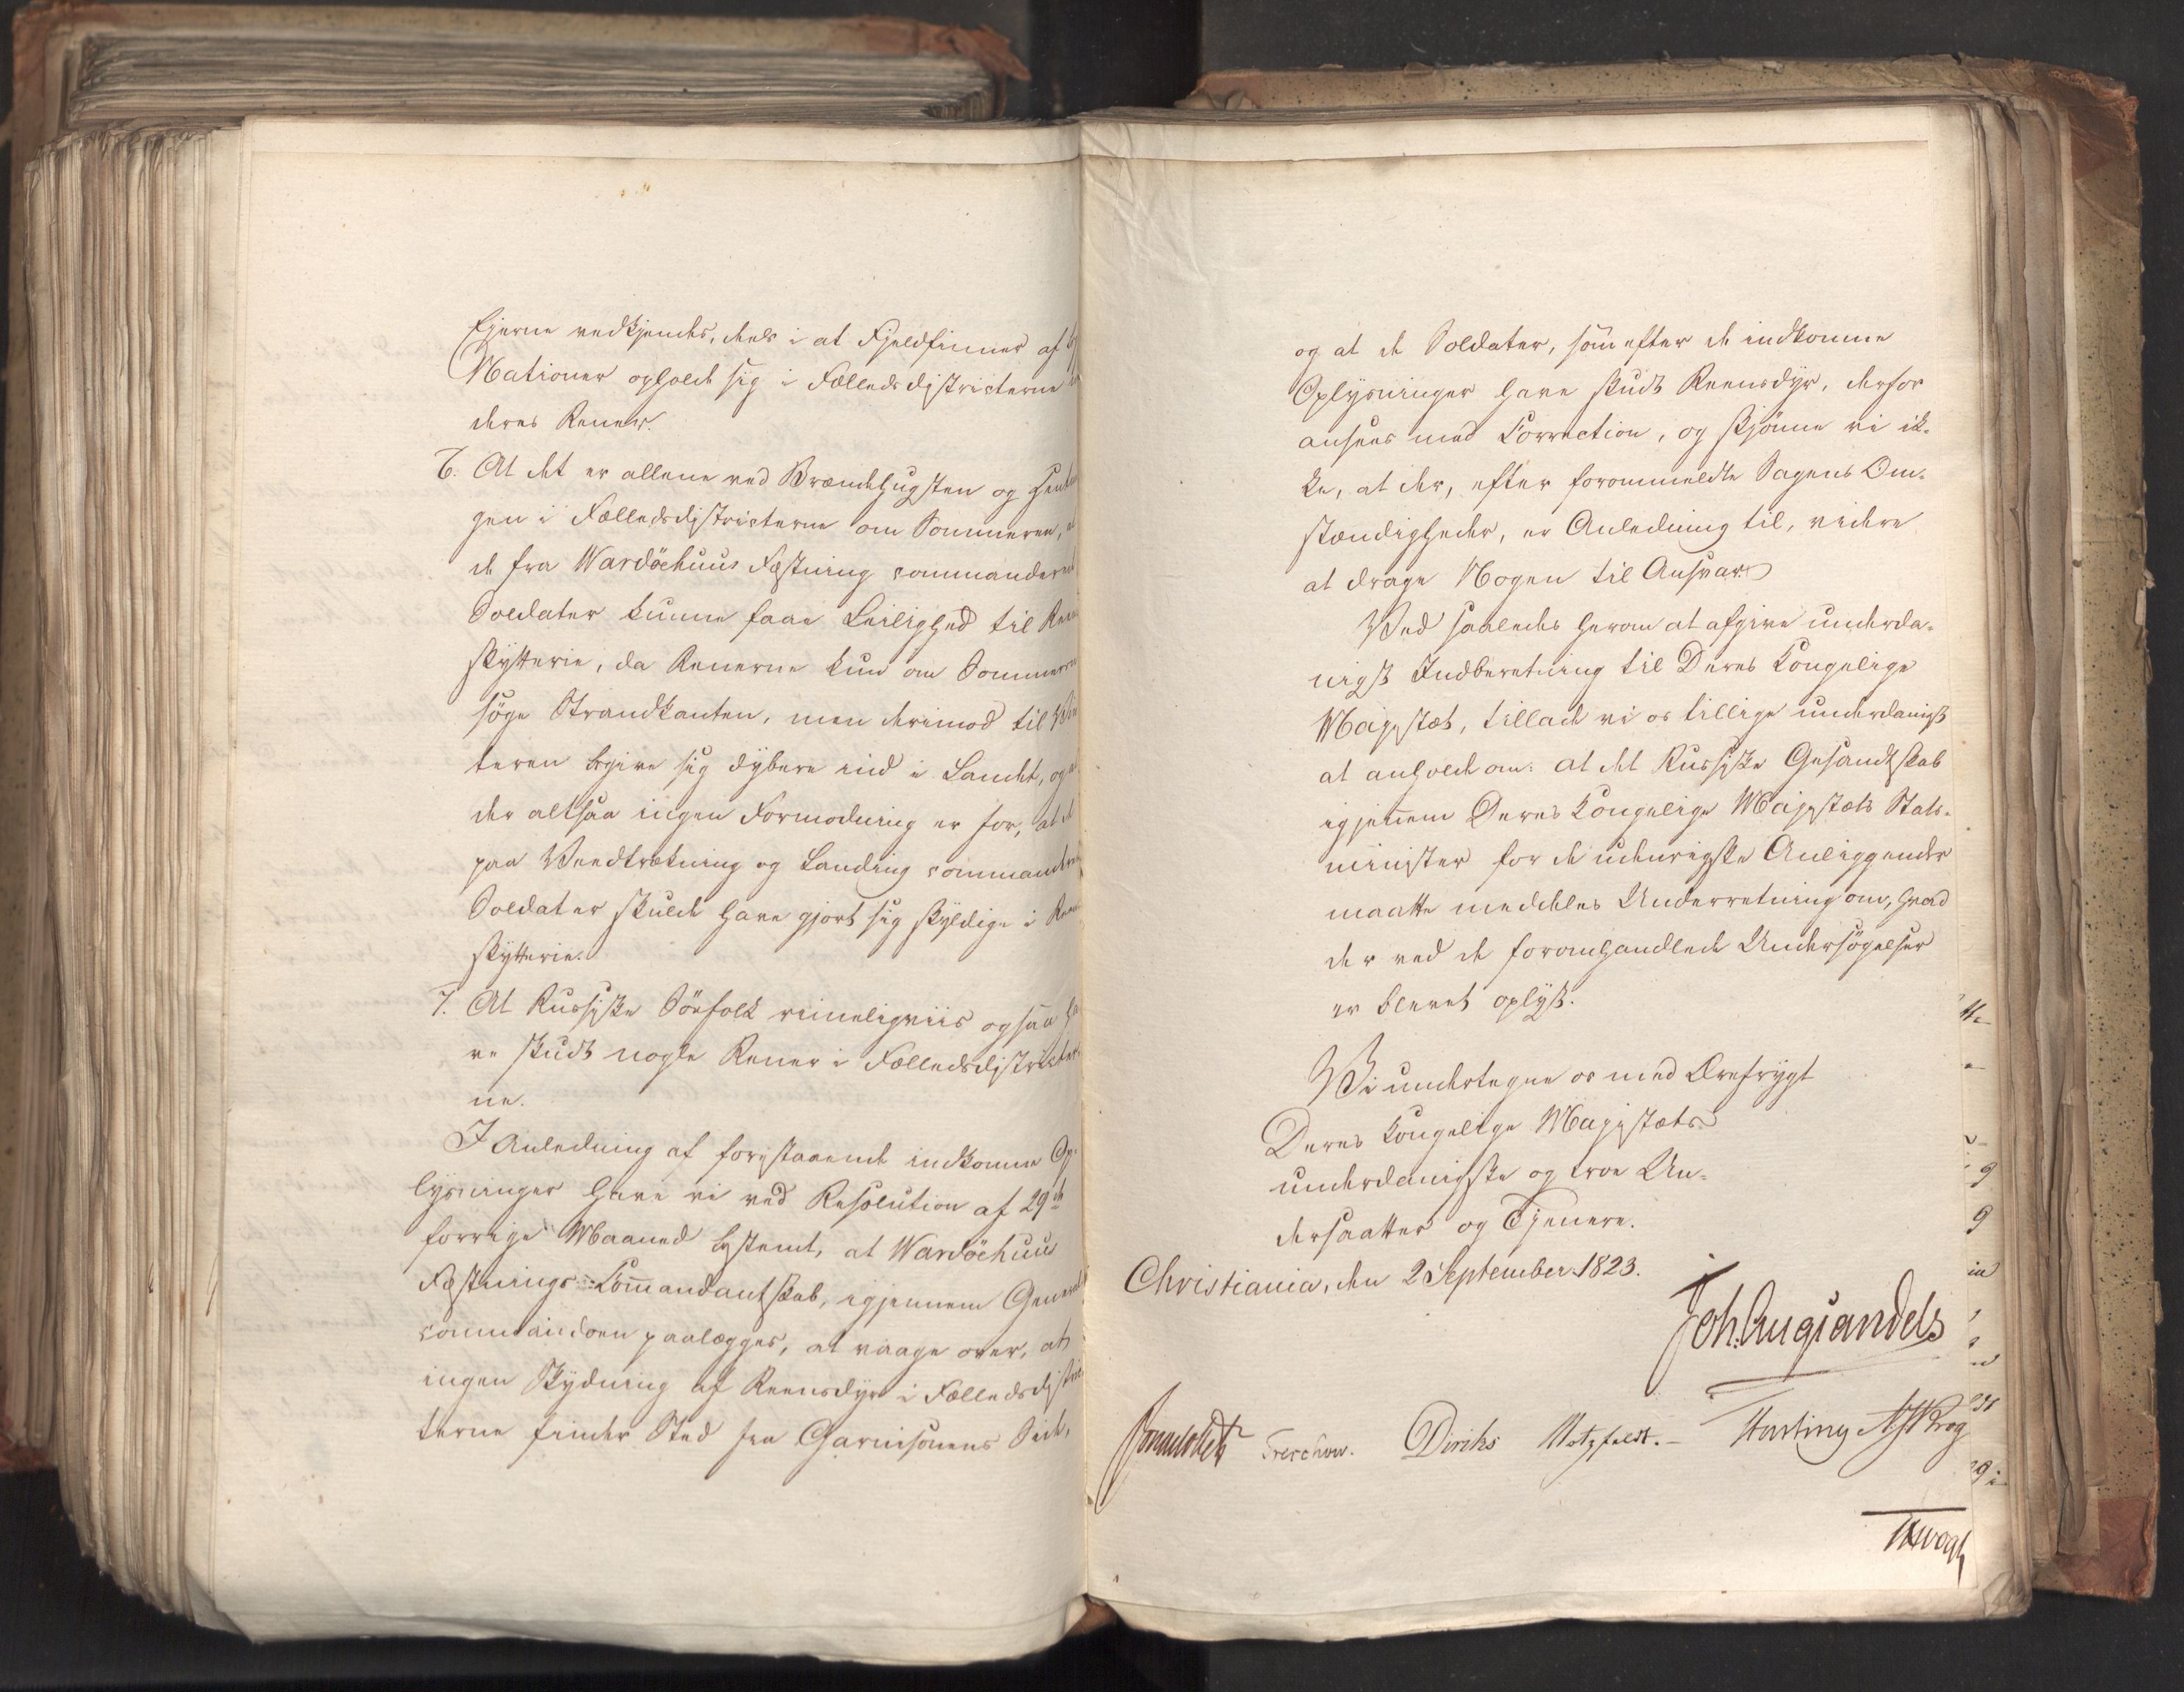 Ejerne vedkjendes, deels i at Fjeldfinner af
Nationer opholde sig i Fælledsdistricterne
deres Rener.
6. At det er allene ved Brændehugsten og
gen i Fælledsdistricterne om Sommeren,
de fra Wardöehuus Fæstning commanderede
Soldater kunne faae Leilighed til
skytterie, da Renerne kun om Sommeren
söge Strandkanten, men derimod til Vin
teren begive sig dybere ind i Landet, og
der altsaa ingen Formodning er for, at de
paa Veedtrækning og Landing commanderede
Soldater skulde have gjort sig skyldige i
skytterie.
7. At Russiske Söefolk rimeligviis ogsaa ha
ve skudt nogle Rener i Fælledsdistricter-
ne.
I Anledning af forestaaende indkomne Op-
lysninger have vi ved Resolution af 29de
forrige Maaned bestemt, at Wardöehuus
Fæstnings-Commandantskab, igjennem General
commandoen paalægges, at vaage over, at
ingen Skydning af Reensdyr i Fælledsdistric
terne finder Sted fra Garnisonens Side,
og at de Soldater, som efter de indkomne
Oplysninger have skudt Reensdyr, derfor
ansees med Correction, og skjönne vi ik-
ke, at der, efter forommeldte Sagens Om-
stændigheder, er Anledning til, videre
at drage Nogen til Ansvar.
Ved saaledes herom at afgive underda-
nigst Indberetning til Deres Kongelige
Majestæt, tillade vi os tillige underdanigst
at anholde om: at det Russiske Gesandtskab
igjennem Deres Kongelige Majestæts Stats-
minister for de udenrigske Anliggender
maatte meddeles Underretning om, hvad
der ved de foromhandlede Undersögelser
er blevet oplyst.
Vi undertegne os med Ærefrygt
Deres Kongelige Majestæts
underdanigste og troe Un-
dersaatter og Tjenere.
Christiania, den 2 September 1823.
Joh. Aug Sandels
Sommerhielm Treschow. Diriks Motzfeldt. Hasting Krog
Vogt